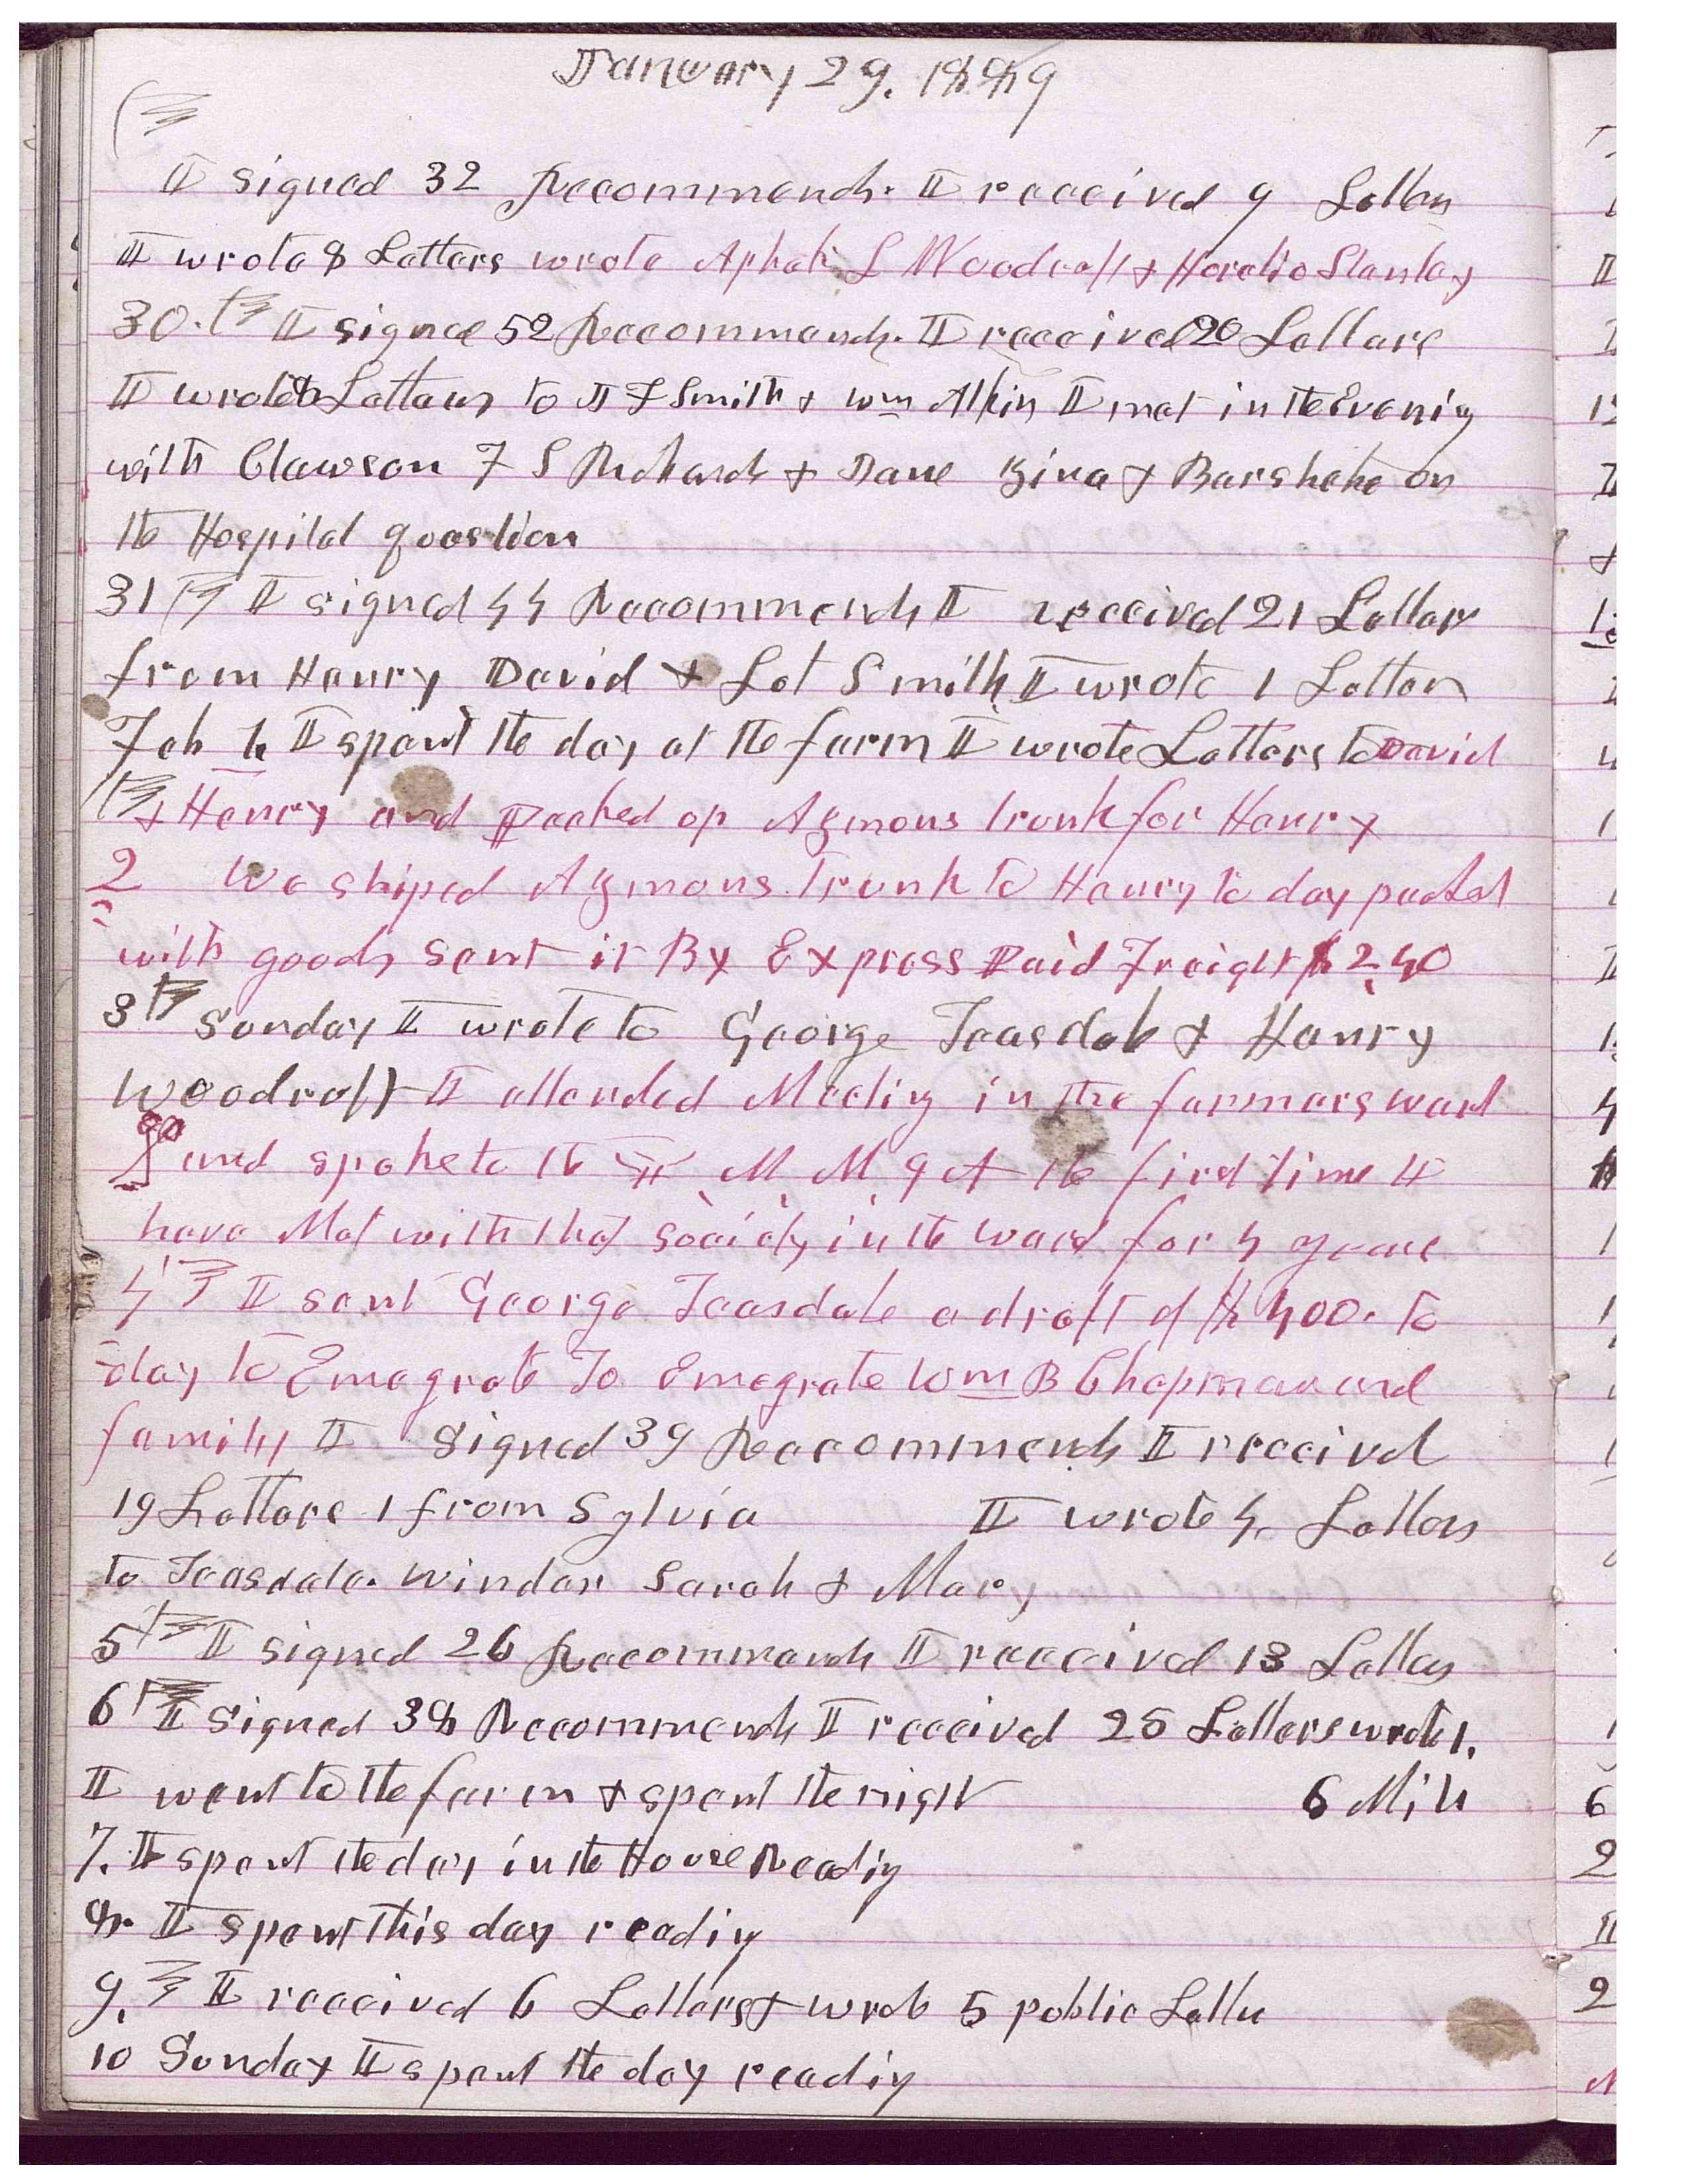 January 29. 1889
I signed 32 Recommends. I received 9 Letters
I wrote 8 Letters wrote Aphek L Woodruff & Horatio Stanley
30.th I signed 52 Recommends. I received 20 Letters
I wrote Letters to J F Smith & Wm Atkin I met in the Evenig
with Clawson F S Richards & Dane Zina & Barsheba on
the Hospital question
31th I signed 44 Recommends I received 21 Letters
from Henry David & Lot Smith, I wrote 1 Letter
Feb 1 I spent the day at the farm I wrote Letters to David
& Henry and Packed up Azmons trunk for Henry
2 We shiped Azmons trunk to Henry to day packed
with goods sent it By Express Paid Freight $2.40
3th Sunday I wrote to George Teasdale & Henry
Woodruff I attended Meetig in the farmers ward
and spoke to the Y M M I A the first time I
have Met with that society in the ward for 4 years
4th I sent George Teasdale a draft of $400. to
day to Emegrate To Emegrate Wm B Chapman and
family I signed 39 Recommends I received
19 Letters 1 from Sylvia I wrote 4 Letters
to Teasdale. Winder Sarah & Mary
5th I signed 26 Recommends I received 13 Letters
6th I signed 38 Recommends I received 25 Letters wrote 1.
I went to the farm & spent the night 6 Mils
7. I spent the day in the House Readig
8. I spent this day readig
9. I received 6 Letters & wrote 5 public Letters
10 Sunday I spent the day readig